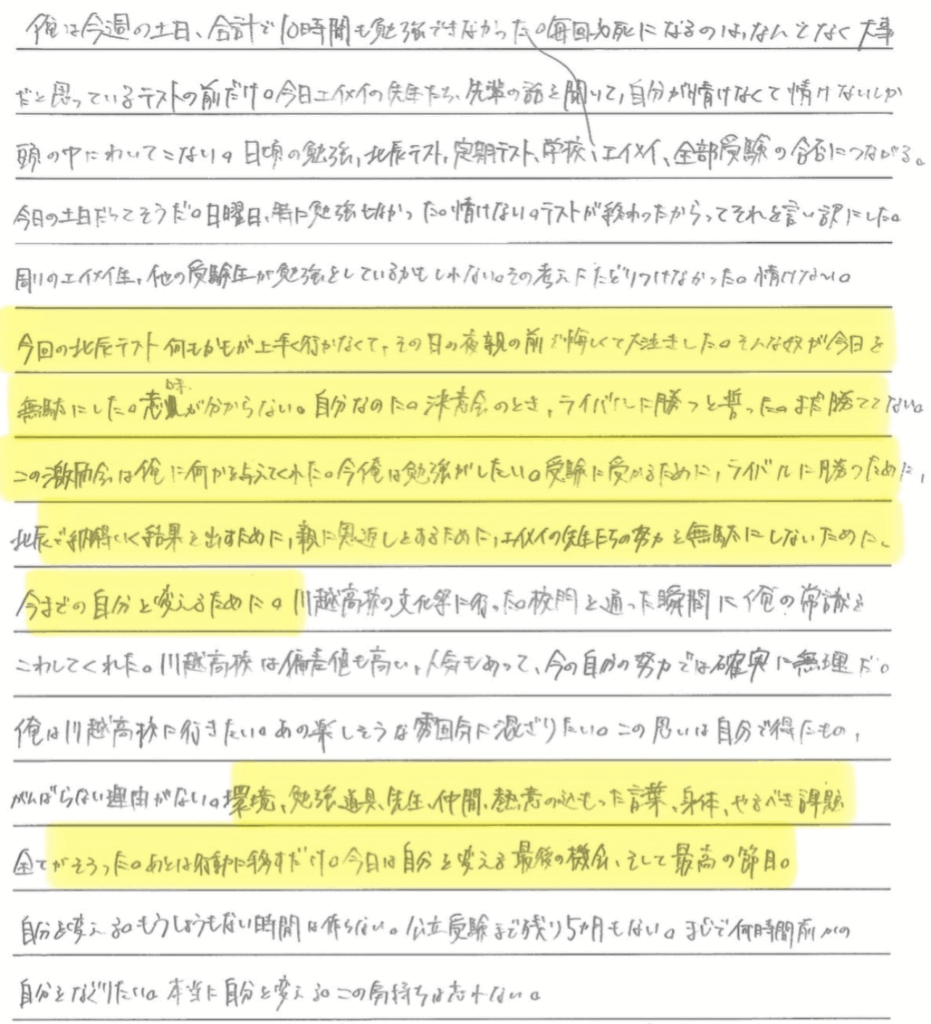 俺は今週の土日、合計で10時間も勉強できなかった。毎回必死になるのは、なんとなく大事
だと思っているテストの前だけ。今日エイメイの先生たち、先輩の話を聞いて、自分が情けなくて情けないしか
頭の中にわいてこない。日頃の勉強、北辰テスト、定期テスト、学校、エイメイ、全部受験の合否につながる。
今日の土日だってそうだ。日曜日、特に勉強しなかった。情けない。テストが終わったからってそれを言い訳にした。
周りのエイメイ生、他の受験生が勉強をしているかもしれない。その考えにたどりつけなかった。情けない。
今回の北辰テスト何もかもが上手く行かなくて、その日の夜親の前で悔しくて大泣きした。そんな奴が今日を
無駄にした。意味が分からない。自分なのに。決意会のとき、ライバルに勝つと誓った。まだ勝ててない。
この激励会は俺に何かを与えてくれた。今俺は勉強がしたい。受験に受かるために、ライバルに勝つために、
北辰で納得いく結果を出すために、親に恩返しをするために、エイメイの先生たちの努力を無駄にしないために、
今までの自分を変えるために。川越高校の文化祭に行った。校門を通った瞬間に俺の常識を
こわしてくれた。川越高校は偏差値も高い、人気もあって、今の自分の努力では確実に無理だ。
俺は川越高校に行きたい。あの楽しそうな雰囲気に混ざりたい。この思いは自分で得たもの、
がんばらない理由がない。環境、勉強道具、先生、仲間、熱意の込もった言葉、身体、やるべき課題
全てがそろった。あとは行動に移すだけ。今日は自分を変える最後の機会、そして最高の節目。
自分を変える。もうしょうもない時間は作らない。公立受験まで残り5か月もない。まじで何時間前かの
自分をなぐりたい。本当に自分を変える。この気持ちは忘れない。